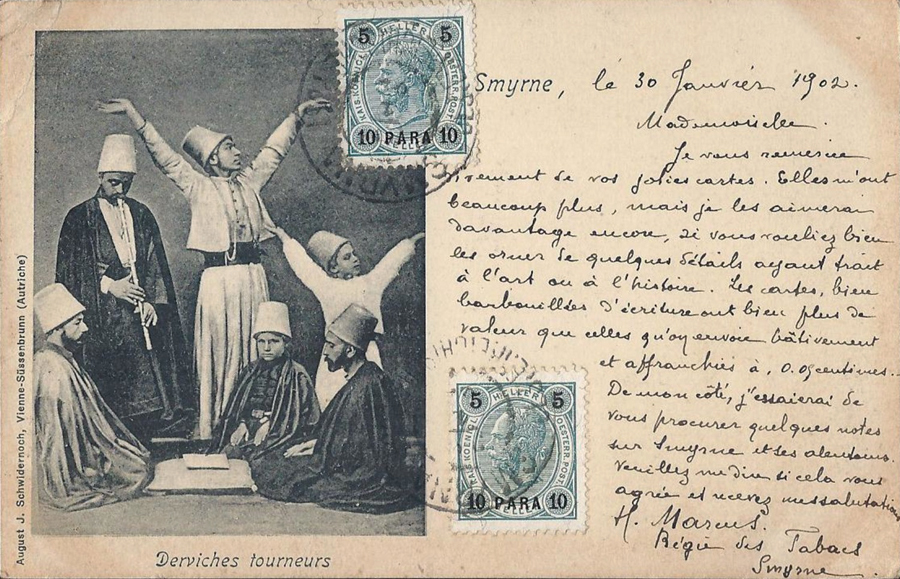 Smyrne, le 30 Janvier 1902.
Mademoiselle.
Je vous remercie
vivement de vos jolies cartes. Elles m'ont
beaucoup plus, mais je les aimerai
davantage encore, si vous vouliez bien
les orner de quelques détails ayant trait
à l'art ou à l'histoire. Les cartes, bien
barbouillées d'écriture ont bien plus de
valeur que celles qu'on envoie hâtivement
et affranchies à 0.05 centimes.
De mon côté, j'essaierai de
vous procurer quelques notes
sur Smyrne et ses alentours.
Veuillez me dire si cela vous
agrée et recevez mes salutations
H. Marcus.
Régie des Tabacs
Smyrne
5 HELLER 5
KAIS. KOENIGL. OESTERR. POST
10 PARA 10
HELLER
5 HELLER 5
KAIS. KOENIGL. OESTERR. POST
10 PARA 10
HELLER
Derviches tourneurs
August J. Schwidernoch, Vienne-Süssenbrunn (Autriche)